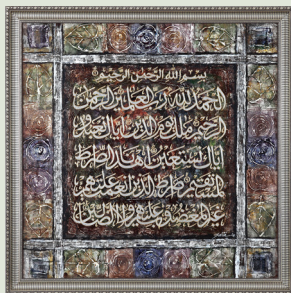 بسم الله الرحمن الرحيم
الحمد لله رب العلمين الرحمن
الرحيم ملك يوم الدين اياك نعبد و
اياك نستعين اهدنا الصراط
المستقيم صراط الذين انعمت عليهم
غير المغضوب عليهم ولا الضالين